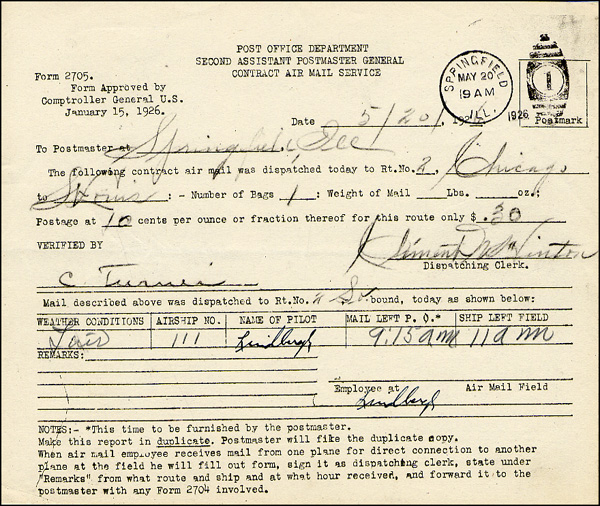 POST OFFICE DEPARTMENT
SECOND ASSISTANT POSTMASTER GENERAL
CONTRACT AIR MAIL SERVICE
Form 2705.
Form Approved by
Comptroller General U.S.
January 15, 1926.
SPRINGFIELD
MAY 20
9 AM
ILL.
1
Date 5/20/, 1926.
Postmark
To Postmaster at Springfield, Ill
The following contract air mail was dispatched today to Rt.No. 2, Chicago
to St Louis : - Number of Bags 1 : Weight of Mail Lbs. oz.:
Postage at 10 cents per ounce or fraction thereof for this route only $ .30
VERIFIED BY
Dispatching Clerk.
C. Turner
Mail described above was dispatched to Rt.No. 2 So. bound, today as shown below:
WEATHER CONDITIONS AIRSHIP NO. NAME OF PILOT MAIL LEFT P. O.* SHIP LEFT FIELD
Fair 111 Lindbergh 9:15 am 11 am
REMARKS:
Employee at Air Mail Field
Lindbergh
NOTES:- *This time to be furnished by the postmaster.
Make this report in duplicate. Postmaster will file the duplicate copy.
When air mail employee receives mail from one plane for direct connection to another
plane at the field he will fill out form, sign it as dispatching clerk, state under
"Remarks" from what route and ship and at what hour received, and forward it to the
postmaster with any Form 2704 involved.